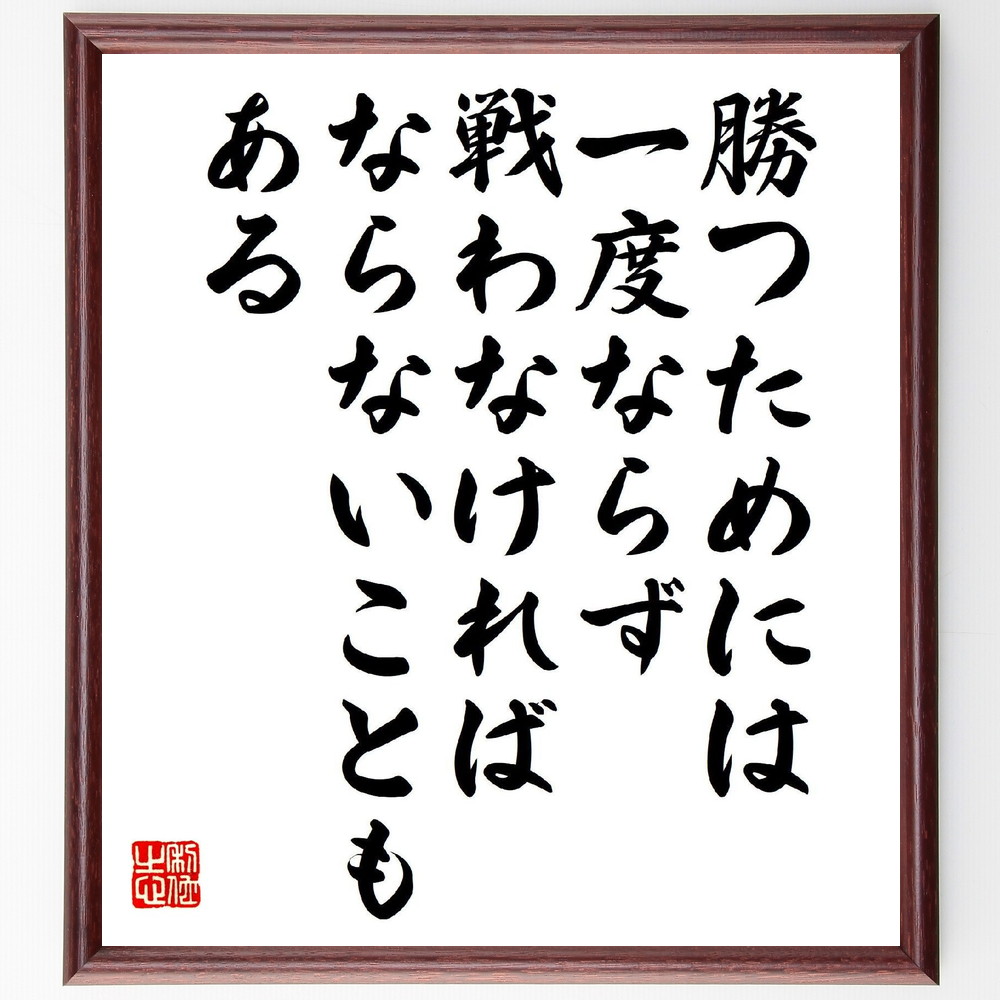 勝つためには
一度ならず
戦わなければ
ならないことも
ある